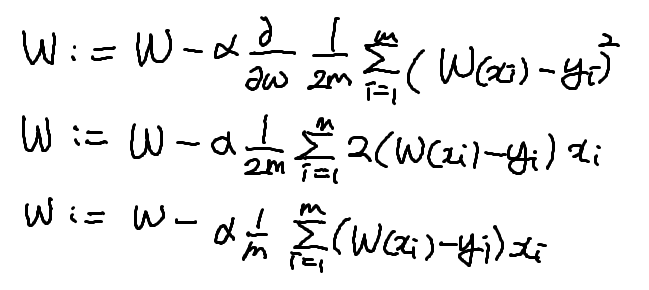 W := W - α ∂/∂w 1/2m Σ_{i=1}^{m} (W(xi) - yi)²
W := W - α 1/2m Σ_{i=1}^{m} 2(W(xi) - yi) xi
W := W - α 1/m Σ_{i=1}^{m} (W(xi) - yi) xi